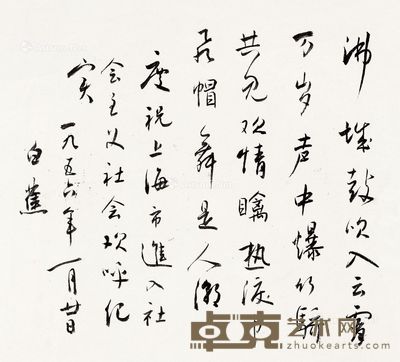 沸城鼓吹入云霄
万岁声中爆竹骄
共见欢情热泪
帽舞是人潮
庆祝上海市進入社
会主义社会欢呼纪
实 一九五六年一月廿日
白蕉
卓克艺术网
zhuokearts.com